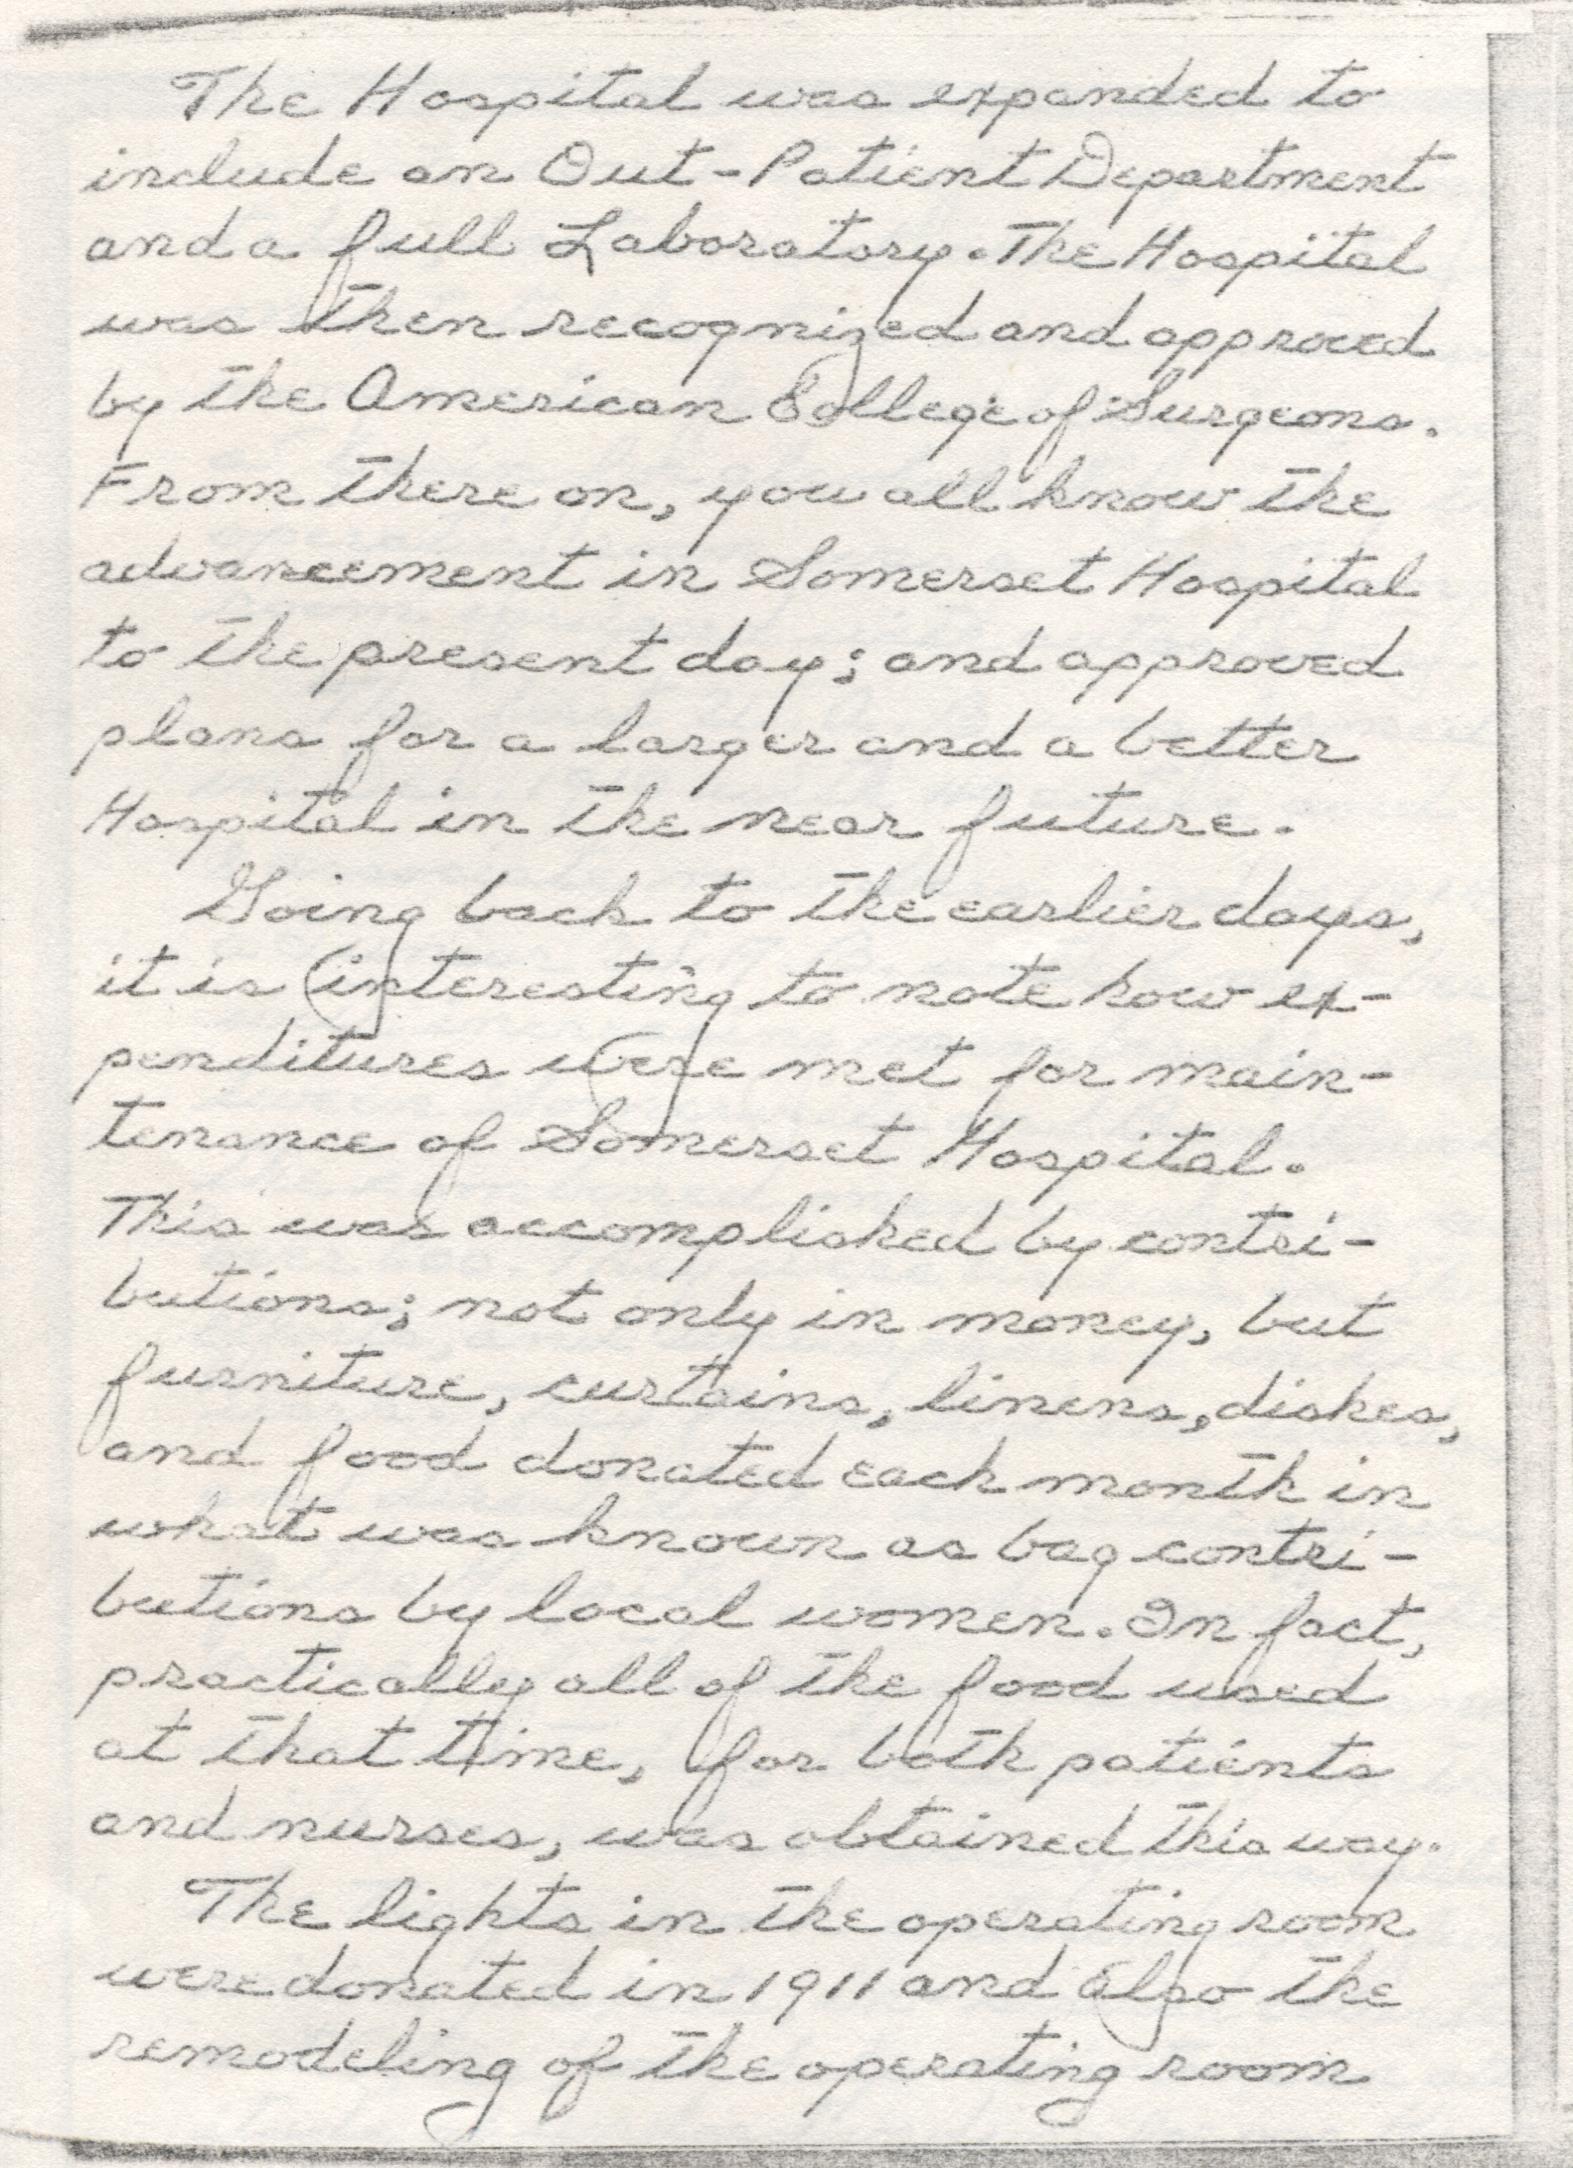 The Hospital was expanded to
include an Out-Patient Department
and a full Laboratory. The Hospital
was then recognized and approved
by the American College of Surgeons.
From there on, you all know the
advancement in Somerset Hospital
to the present day; and approved
plans for a larger and a better
Hospital in the near future.
Going back to the earlier days,
it is interesting to note how ex-
penditures were met for main-
tenance of Somerset Hospital.
This was accomplished by contri-
butions; not only in money, but
furniture, curtains, linens, dishes,
and food donated each month in
what was known as bag contri-
butions by local women. In fact,
practically all of the food used
at that time, for both patients
and nurses, was obtained this way.
The lights in the operating room
were donated in 1911 and also the
remodeling of the operating room